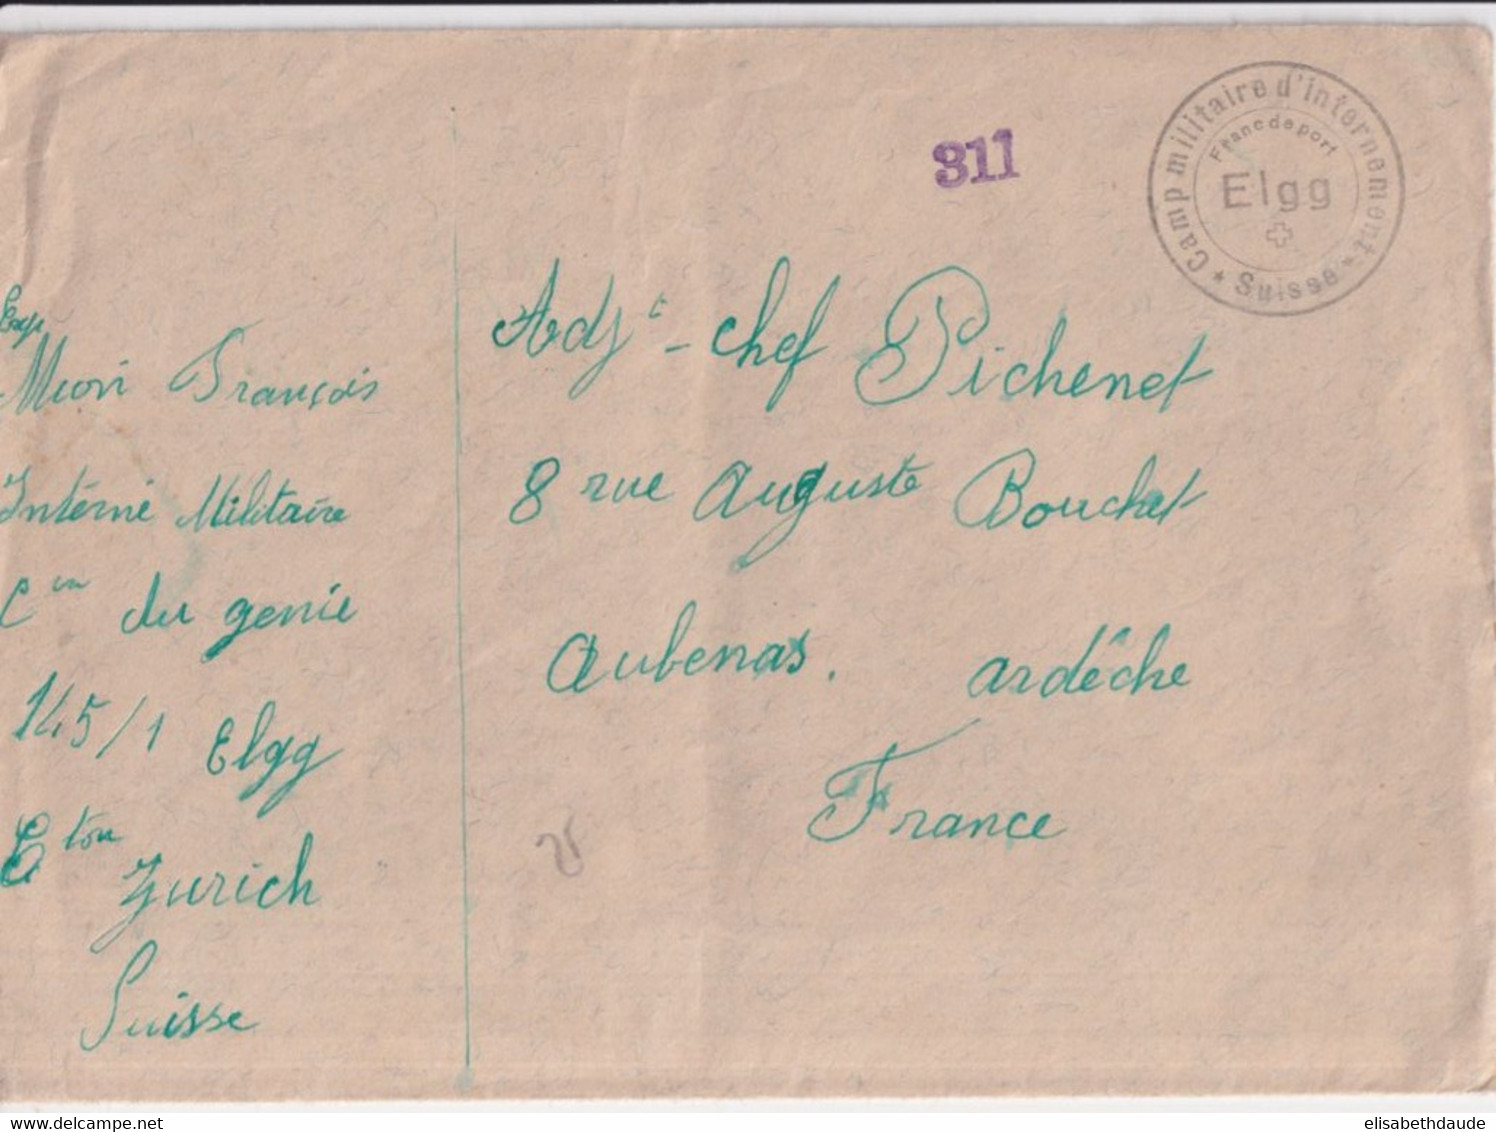 311
Camp militaire d'internement
Franc de port
Elgg
Suisse
Exp
François
Interné Militaire
Cie du genie
145/1 Elgg
Cton
Zurich
Suisse
Adjt - chef Pichenet
8 rue Auguste Bouchet
Aubenas. Ardêche
France
elisabethdaude